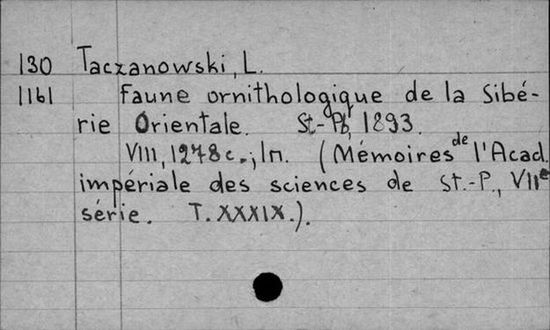 130 Taczanowski, L.
1161 Faune ornithologique de la Sibé-
rie Orientale. St-Pb, 1893.
VIII, 1278 c.; 1п. (Mémoires de l'Acad.
impériale des sciences de St.-P., VIIe
série. T. XXXIX.).